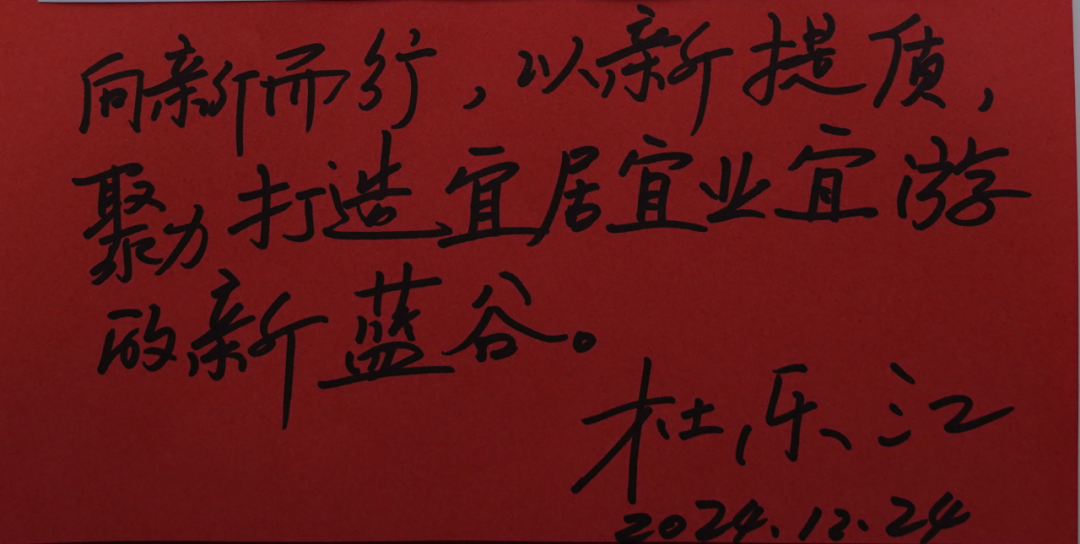 向新而行，以新提质，
聚力打造宜居宜业宜游
的新蓝谷。
杜乐江
2024.12.24